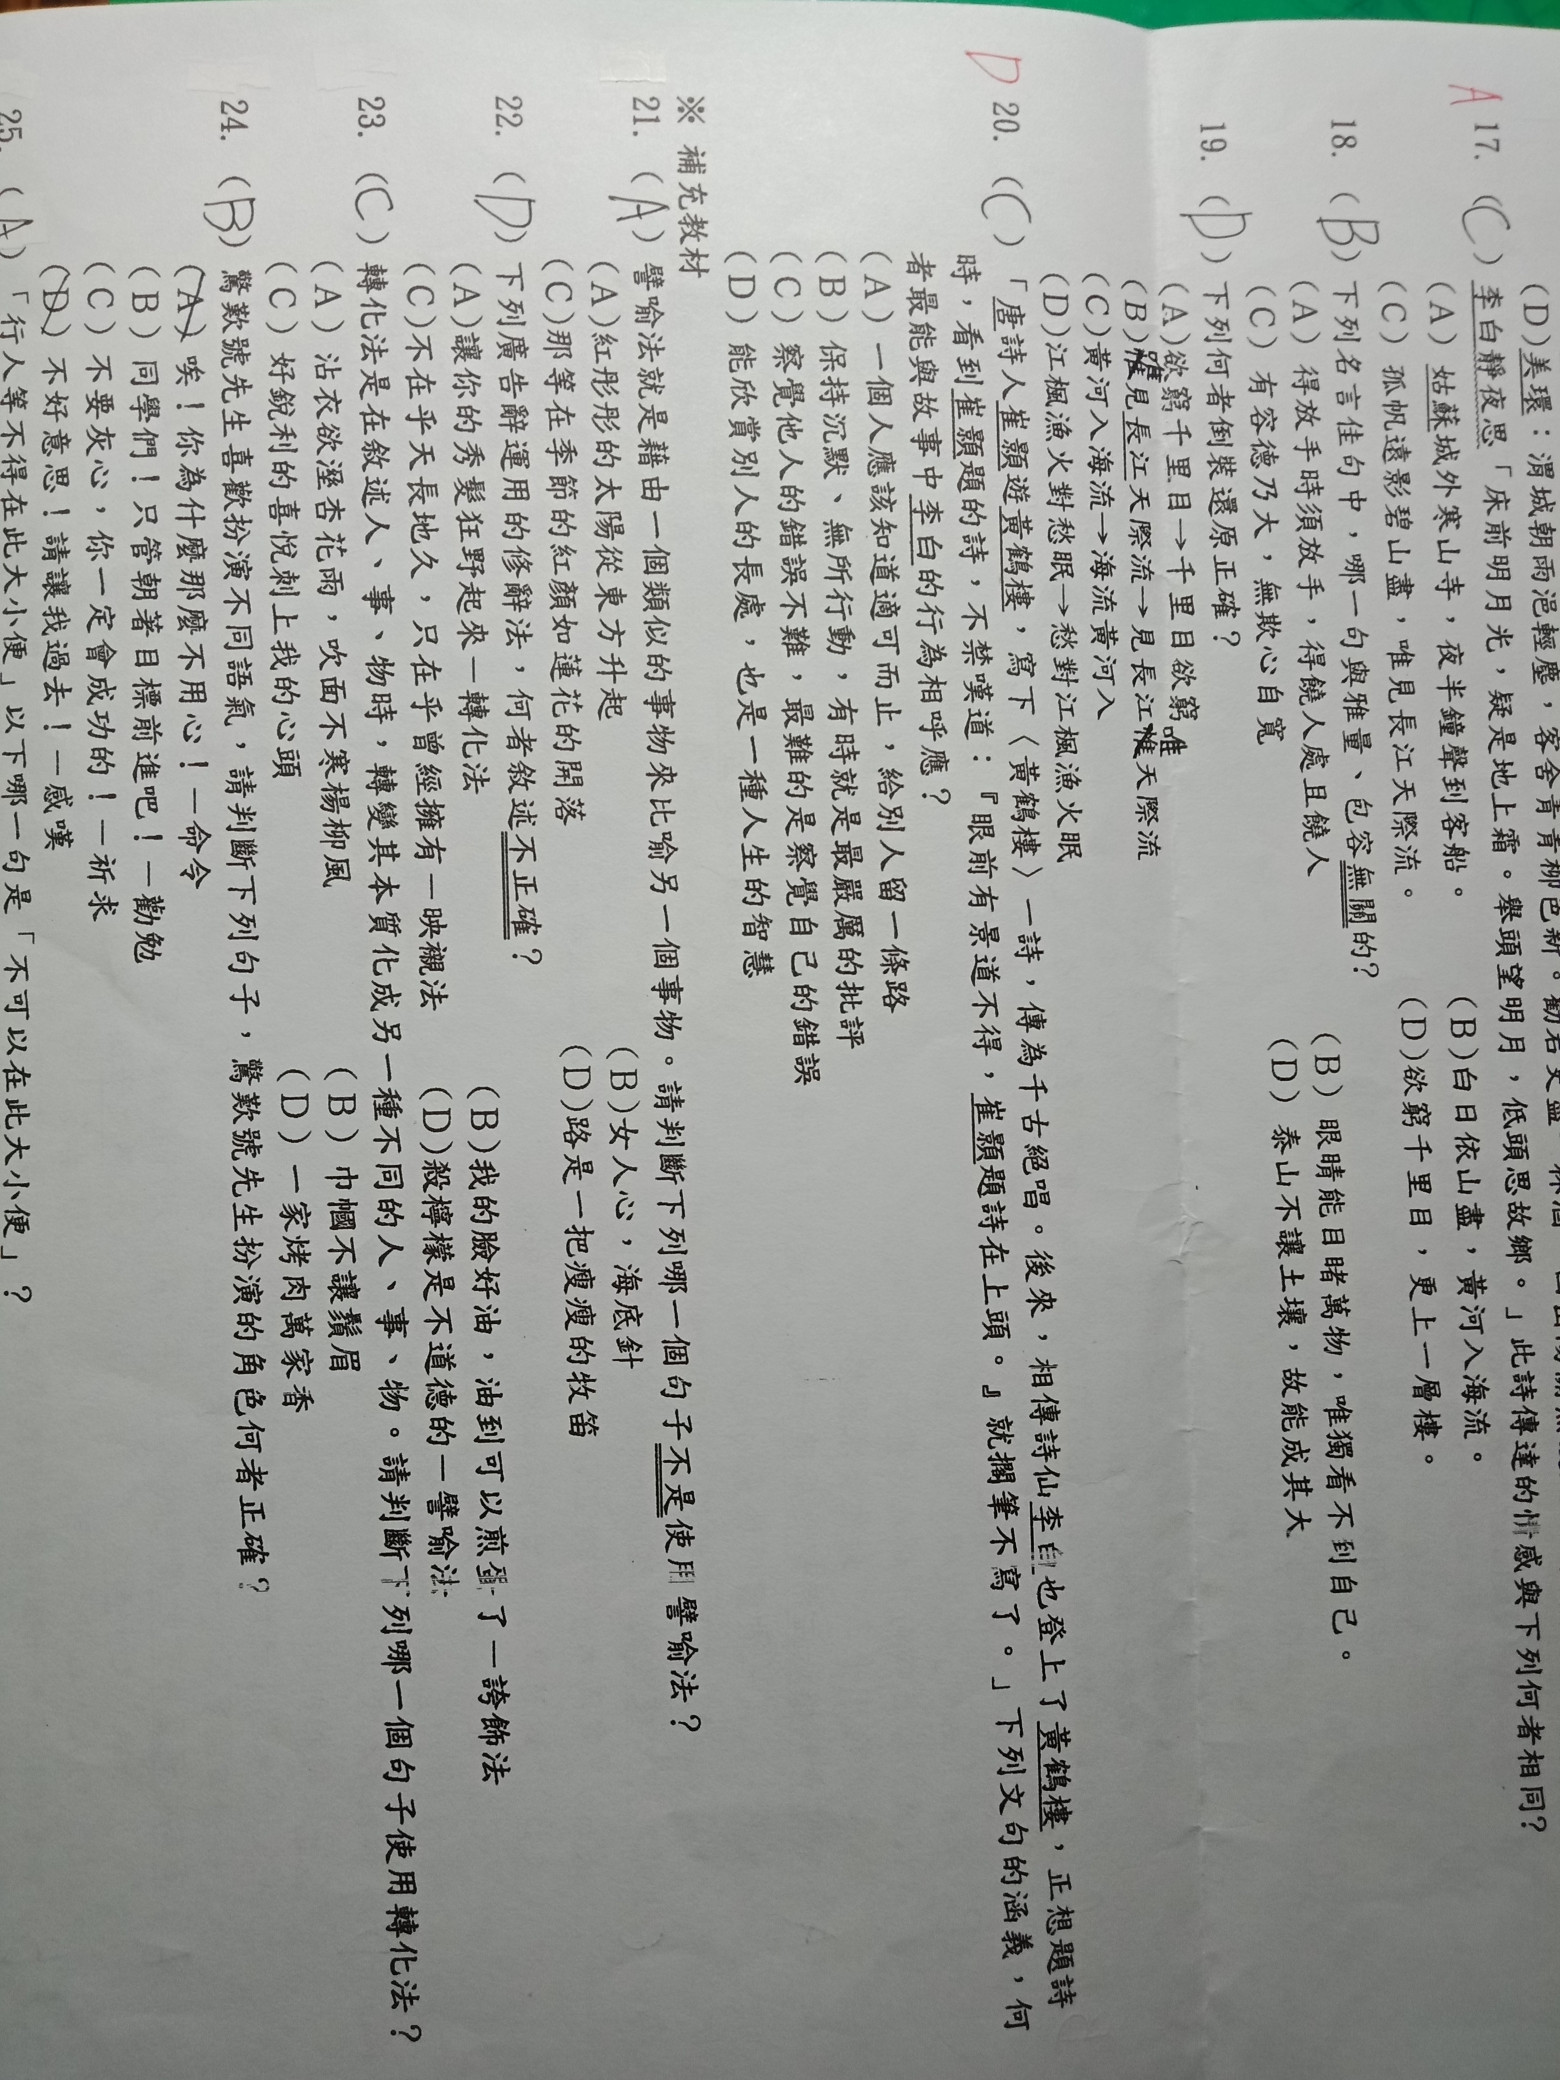 (D)美環：渭城朝雨浥輕塵，客舍青青柳色新。
A 17. (C) 李白靜夜思「床前明月光，疑是地上霜。舉頭望明月，低頭思故鄉。」此詩傳達的情感與下列何者相同?
(A) 姑蘇城外寒山寺，夜半鐘聲到客船。 (B)白日依山盡，黃河入海流。
(C) 孤帆遠影碧山盡，唯見長江天際流。 (D)欲窮千里目，更上一層樓。
18. (B) 下列名言佳句中，哪一句與雅量、包容無關的?
(A) 得放手時須放手，得饒人處且饒人 (B) 眼睛能目睹萬物，唯獨看不到自己。
(C) 有容德乃大，無欺心自寬 (D) 泰山不讓土壤，故能成其大
19. (D) 下列何者倒裝還原正確？
(A)欲窮千里目→千里目欲窮
(B)唯見長江天際流→見長江唯天際流
(C)黃河入海流→海流黃河入
(D)江楓漁火對愁眠→愁對江楓漁火眠
D 20. (C) 「唐詩人崔顥遊黃鶴樓，寫下〈黃鶴樓〉一詩，傳為千古絕唱。後來，相傳詩仙李白也登上了黃鶴樓，正想題詩
時，看到崔顥題的詩，不禁嘆道：『眼前有景道不得，崔顥題詩在上頭。』就擱筆不寫了。」下列文句的涵義，何
者最能與故事中李白的行為相呼應？
(A) 一個人應該知道適可而止，給別人留一條路
(B) 保持沉默、無所行動，有時就是最嚴厲的批評
(C) 察覺他人的錯誤不難，最難的是察覺自己的錯誤
(D) 能欣賞別人的長處，也是一種人生的智慧
※ 補充教材
21. (A) 譬喻法就是藉由一個類似的事物來比喻另一個事物。請判斷下列哪一個句子不是使用譬喻法？
(A)紅彤彤的太陽從東方升起 (B)女人心，海底針
(C)那等在季節的紅顏如蓮花的開落 (D)路是一把瘦瘦的牧笛
22. (D) 下列廣告辭運用的修辭法，何者敘述不正確？
(A)讓你的秀髮狂野起來—轉化法 (B)我的臉好油，油到可以煎蛋了—誇飾法
(C)不在乎天長地久，只在乎曾經擁有—映襯法 (D)殺檸檬是不道德的—譬喻法
23. (C) 轉化法是在敘述人、事、物時，轉變其本質化成另一種不同的人、事、物。請判斷下列哪一個句子使用轉化法？
(A) 沾衣欲溼杏花雨，吹面不寒楊柳風 (B) 巾幗不讓鬚眉
(C) 好銳利的喜悅刺上我的心頭 (D) 一家烤肉萬家香
24. (B) 驚歎號先生喜歡扮演不同語氣，請判斷下列句子，驚歎號先生扮演的角色何者正確？
(A) 唉！你為什麼那麼不用心！—命令
(B) 同學們！只管朝著目標前進吧！—勸勉
(C) 不要灰心，你一定會成功的！—祈求
(D) 不好意思！請讓我過去！—感嘆
25. (A) 「行人等不得在此大小便」以下哪一句是「不可以在此大小便」？